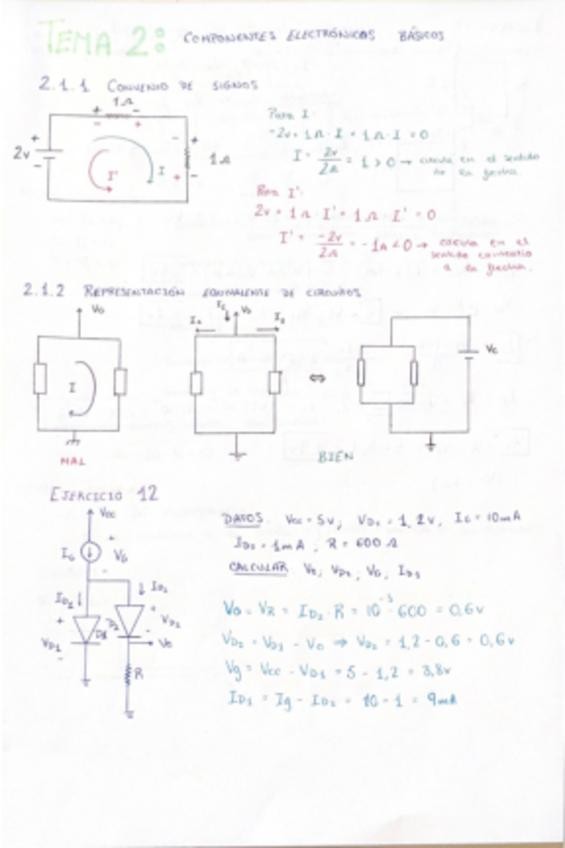 TEMA 2: COMPONENTES ELECTRÓNICOS BÁSICOS
2.1.1 CONVENIO DE SIGNOS
1Ω
+ -
- +
2v
+
-
I'
I
-
+
+
-
1Ω
Para I:
-2v + 1Ω · I + 1Ω · I = 0
I = 2v/2Ω = 1 > 0 → circula en el sentido
de la flecha.
Para I':
2v + 1Ω · I' + 1Ω · I' = 0
I' = -2v/2Ω = -1A < 0 → circula en el
sentido contrario
a la flecha.
2.1.2 REPRESENTACIÓN EQUIVALENTE DE CIRCUITOS
Vo
I
MAL
Vo
⇔
Vc
BIEN
EJERCICIO 12
Vcc
IG
+
VG
-
ID1
ID2
+
VD1
-
D1
D2
+
VD2
-
Vo
R
DATOS: Vcc = 5v, VD1 = 1,2v, IG = 10mA
ID2 = 1mA, R = 600Ω
CALCULAR: Vo, VD2, VG, ID1
Vo = VR = ID2 · R = 10⁻³ · 600 = 0,6v
VD2 = VD1 - Vo ⇒ VD2 = 1,2 - 0,6 = 0,6v
Vg = Vcc - VD1 = 5 - 1,2 = 3,8v
ID1 = Ig - ID2 = 10 - 1 = 9mA